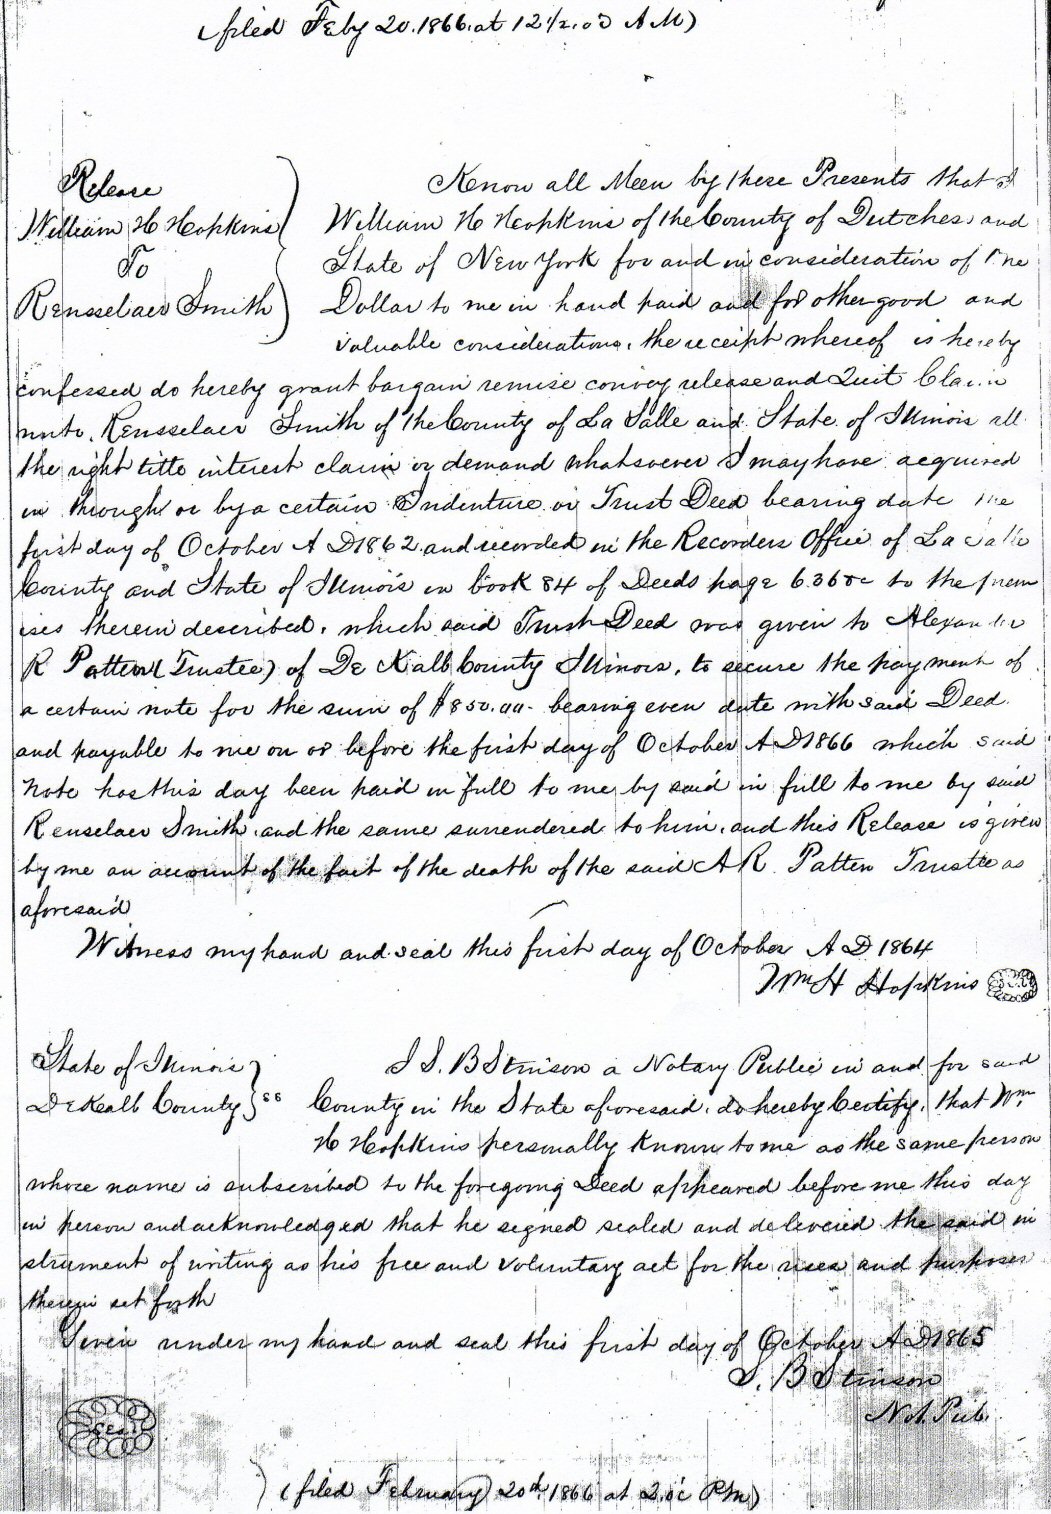 (filed Feby 20. 1866. at 12½. oc A M)
Release
William H Hopkins
To
Rensselaer Smith
Know all Meen by these Presents that I
William H Hopkins of the County of Dutches and
State of New York for and in consideration of One
Dollar to me in hand paid and for other good and
valuable considerations, the receipt whereof is hereby
confessed do hereby grant bargain remise convey release and Quit Claim
unto, Rensselaer Smith of the County of La Salle and State of Illinois all
the right title interest claim or demand whatsoever I may have acquired
in through or by a certain Indenture or Trust Deed bearing date the
first day of October A D 1862 and recorded in the Recorders Office of La Salle
County and State of Illinois in book 84 of Deeds page 636 &c to the prem
ises therein described, which said Trust Deed was given to Alexander
R Patten (Trustee) of De Kalb County Illinois, to secure the payment of
a certain note for the sum of $850.00 - bearing even date with said Deed.
and payable to me on or before the first day of October A D 1866 which said
Note has this day been paid in full to me by said in full to me by said
Renselaer Smith, and the same surrendered to him, and this Release is given
by me on account of the fact of the death of the said A R Patten Trustee as
aforesaid
Witness my hand and seal this first day of October A D 1864
Wm H Hopkins Seal
State of Illinois
DeKalb County } ss
I S. B Stinson a Notary Public in and for said
County in the State aforesaid, do hereby Certify, that Wm
H Hopkins personally known to me as the same person
whose name is subscribed to the foregoing Deed appeared before me this day
in person and acknowledged that he signed sealed and delevered the said in
strument of writing as his free and voluntary act for the uses and purposes
therein set forth
Given under my hand and seal this first day of October A D 1865
S. B Stinson
Not. Pub.
Seal
(filed February 20th 1866 at 2. oc PM)